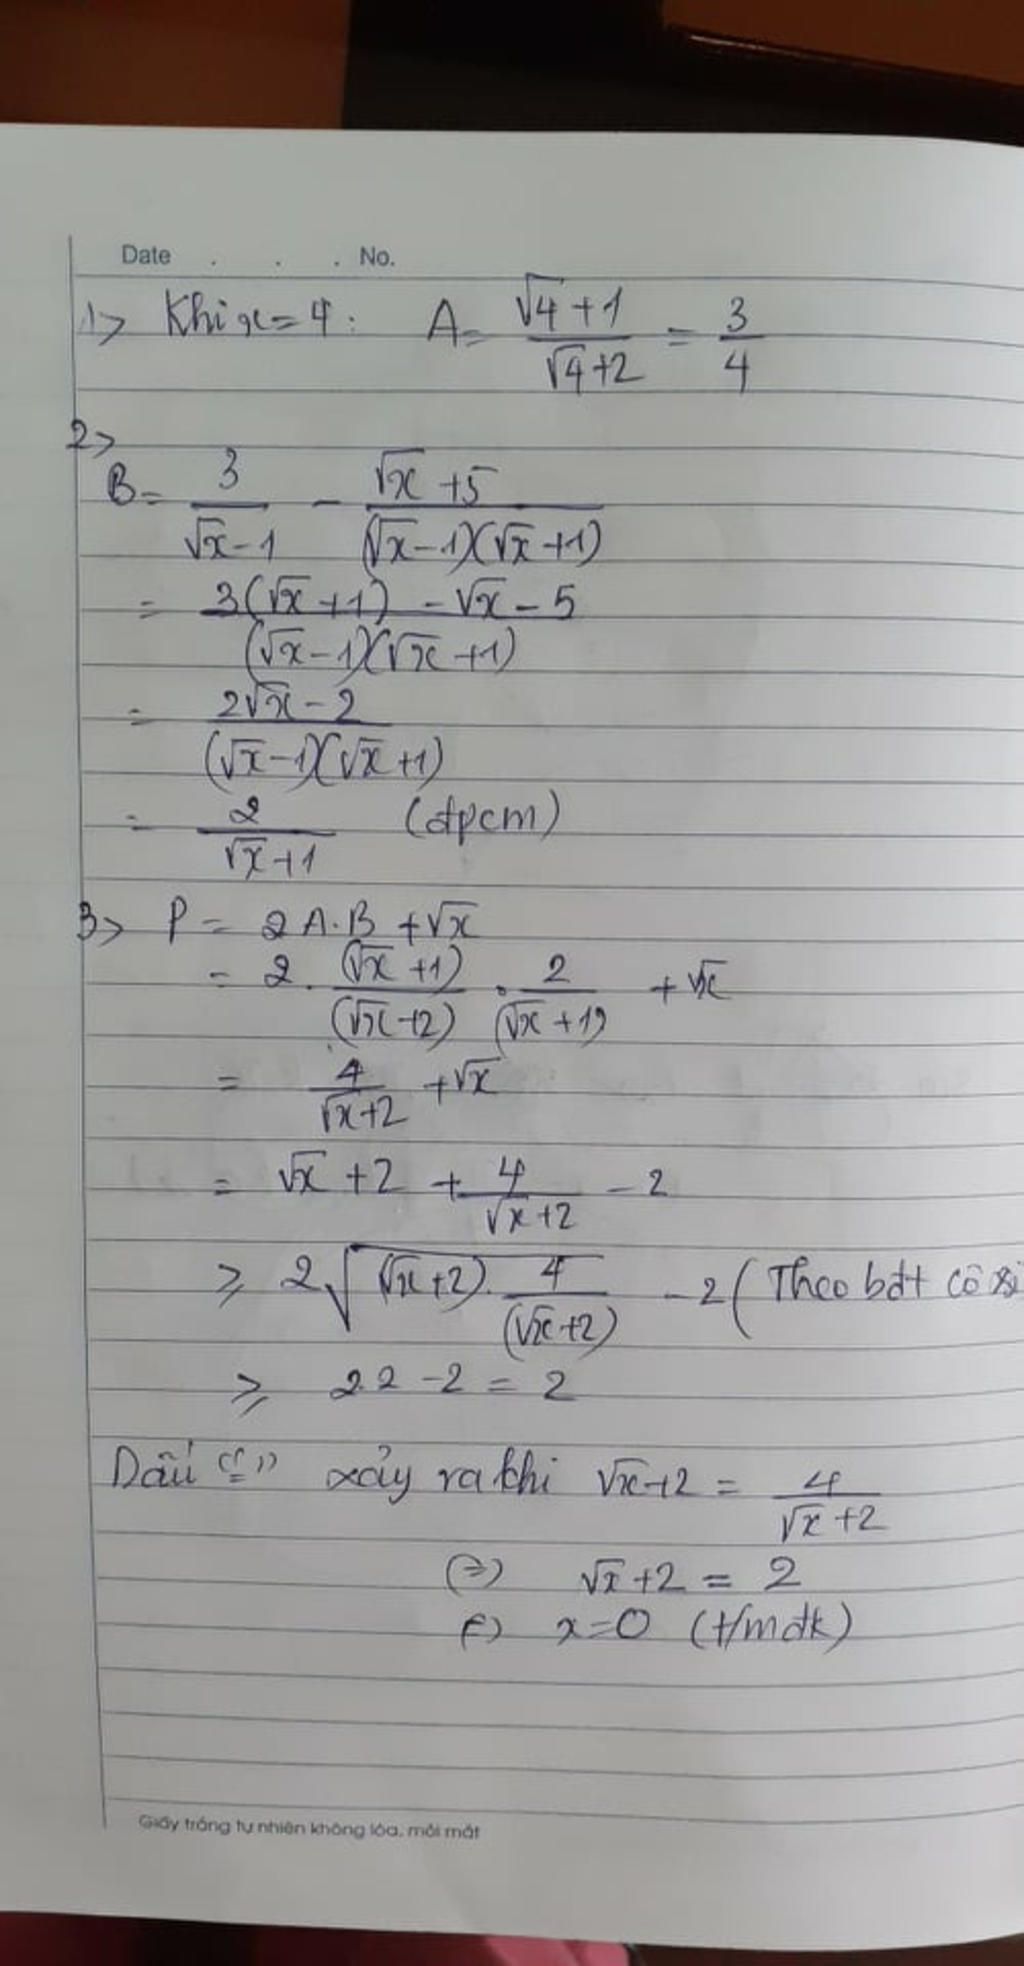 Date . . . No.
1> Khi x = 4: A = (√4 + 1)/(√4 + 2) = 3/4
2>
B = 3/(√x - 1) - (√x + 5)/((√x - 1)(√x + 1))
= (3(√x + 1) - √x - 5)/((√x - 1)(√x + 1))
= (2√x - 2)/((√x - 1)(√x + 1))
= 2/(√x + 1) (đpcm)
3> P = 2A.B + √x
= 2 . (√x + 1)/(√x + 2) . 2/(√x + 1) + √x
= 4/(√x + 2) + √x
= √x + 2 + 4/(√x + 2) - 2
≥ 2√((√x + 2) . 4/(√x + 2)) - 2 (Theo bđt cô si
≥ 2.2 - 2 = 2
Dấu "=" xảy ra khi √x + 2 = 4/(√x + 2)
(=) √x + 2 = 2
(=) x = 0 (t/m đk)
Giấy trắng tự nhiên không lóa, mỏi mắt